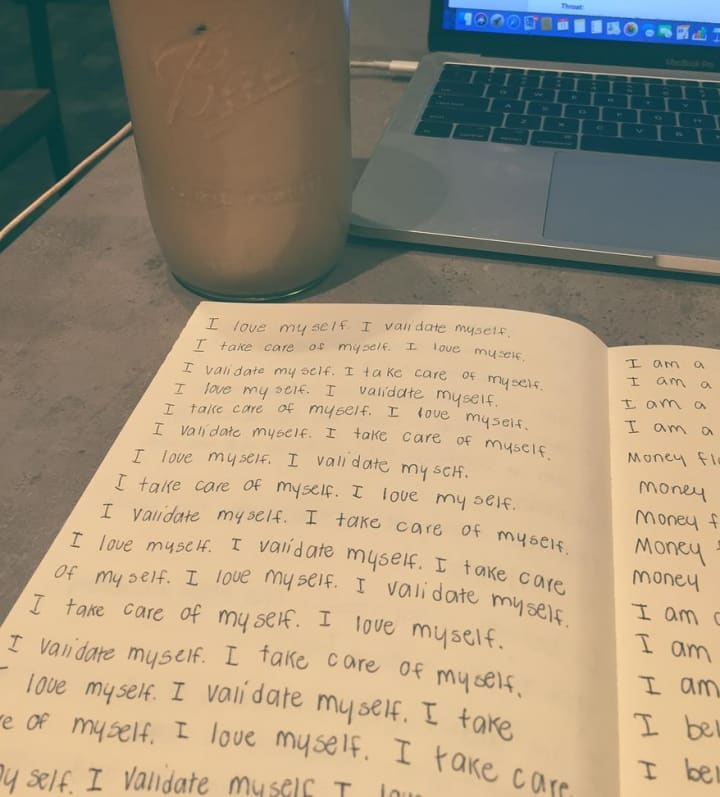 Throat:
MacBook Pro
I love myself. I validate myself.
I take care of myself. I love myself.
I validate myself. I take care of myself.
I love myself. I validate myself.
I take care of myself. I love myself.
I validate myself. I take care of myself.
I love myself. I validate myself.
I take care of myself. I love myself.
I validate myself. I take care of myself.
I love myself. I validate myself. I take care
of myself. I love myself. I validate myself.
I take care of myself. I love myself.
I validate myself. I take care of myself.
love myself. I validate myself. I take
of myself. I love myself. I take care
my self. I validate myself I
I am a
I am a
I am a
I am a
Money
Money
Money
Money
money
I am
I am
I am
I
I